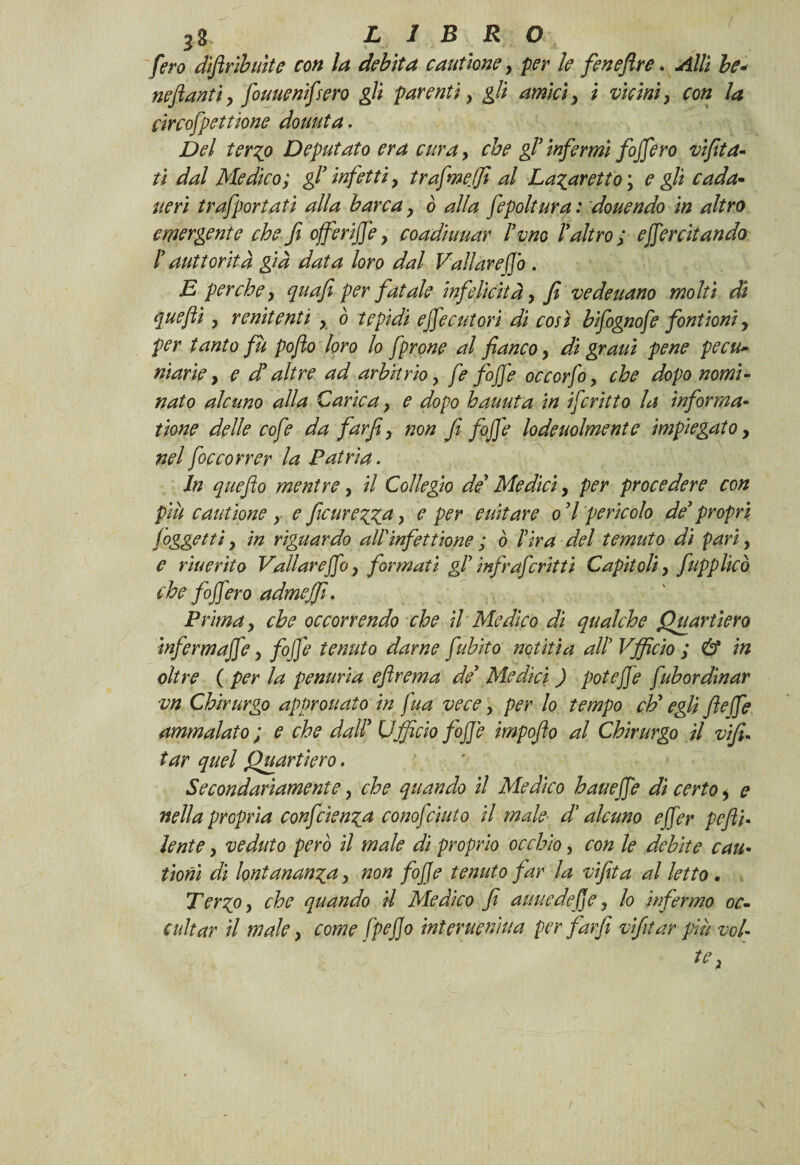 38 LIBRO
ſero diſtribuite con la debita cautione, per le feneſtre. Alli be-
neſtanti, ſouueniſsero gli parenti, gli amici, i vicini, con la
circoſpettione douuta.
Del terzo Deputato era cura, che gl' infermi foſſero viſita-
ti dal Medico; gl' infetti, traſmeſſi al Lazaretto; e gli cada-
ueri traſportati alla barca, ò alla ſepoltura: douendo in altro
emergente che ſi offeriſſe, coadiuuar l'vno l'altro; eſſercitando
l' auttorità già data loro dal Vallareſſo.
E perche, quaſi per fatale infelicità, ſi vedeuano molti di
queſti, renitenti, ò tepidi eſſecutori di così biſognoſe fontioni,
per tanto fù poſto loro lo ſprone al fianco, di graui pene pecu-
niarie, e d' altre ad arbitrio, ſe foſſe occorſo, che dopo nomi-
nato alcuno alla Carica, e dopo hauuta in iſcritto la informa-
tione delle coſe da farſi, non ſi foſſe lodeuolmente impiegato,
nel ſoccorrer la Patria.
In queſto mentre, il Collegio de' Medici, per procedere con
più cautione, e ſicurezza, e per euitare o'l pericolo de' propri
ſoggetti, in riguardo all'infettione; ò l'ira del temuto di pari,
e riuerito Vallareſſo, formati gl' infraſcritti Capitoli, ſupplicò
che foſſero admeſſi.
Prima, che occorrendo che il Medico di qualche Quartiero
infermaſſe, foſſe tenuto darne ſubito notitia all' Vfficio; & in
oltre ( per la penuria eſtrema de' Medici ) poteſſe ſubordinar
vn Chirurgo approuato in ſua vece, per lo tempo ch' egli ſteſſe
ammalato; e che dall' Ufficio foſſe impoſto al Chirurgo il viſi-
tar quel Quartiero.
Secondariamente, che quando il Medico haueſſe di certo, e
nella propria conſcienza conoſciuto il male d' alcuno eſſer peſti-
lente, veduto però il male di proprio occhio, con le debite cau-
tioni di lontananza, non foſſe tenuto far la viſita al letto.
Terzo, che quando il Medico ſi auuedeſſe, lo infermo oc-
cultar il male, come ſpeſſo interueniua per farſi viſitar più vol-
te,